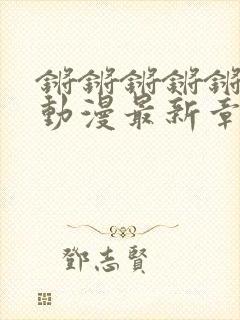 锵锵锵锵锵
動漫最新章
鄧志賢